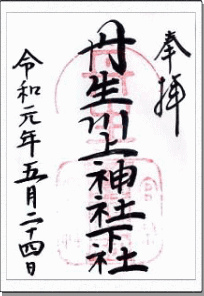 奉拝
丹生川上神社下社
令和元年五月二十四日